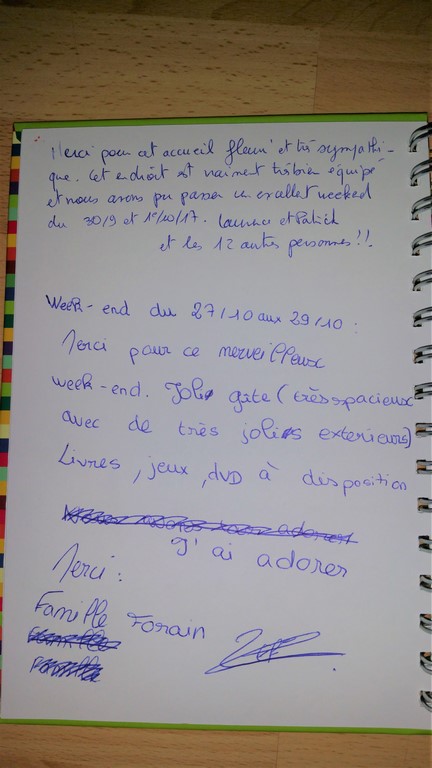 Merci pour cet accueil fleuri et très sympathi-
que. Cet endroit est vraiment très bien équipé
et nous avons pu passer un excellet weekend
du 30/9 et 1er/10/17. Laurence et Patrick
et les 12 autres personnes !!.
Week-end du 27/10 aux 29/10 :
Merci pour ce merveilleux
week-end. Joli gite (très spacieux
avec de très jolis exterieurs)
Livres, jeux, DVD à disposition
J'ai adorer
Merci :
Famille Forain